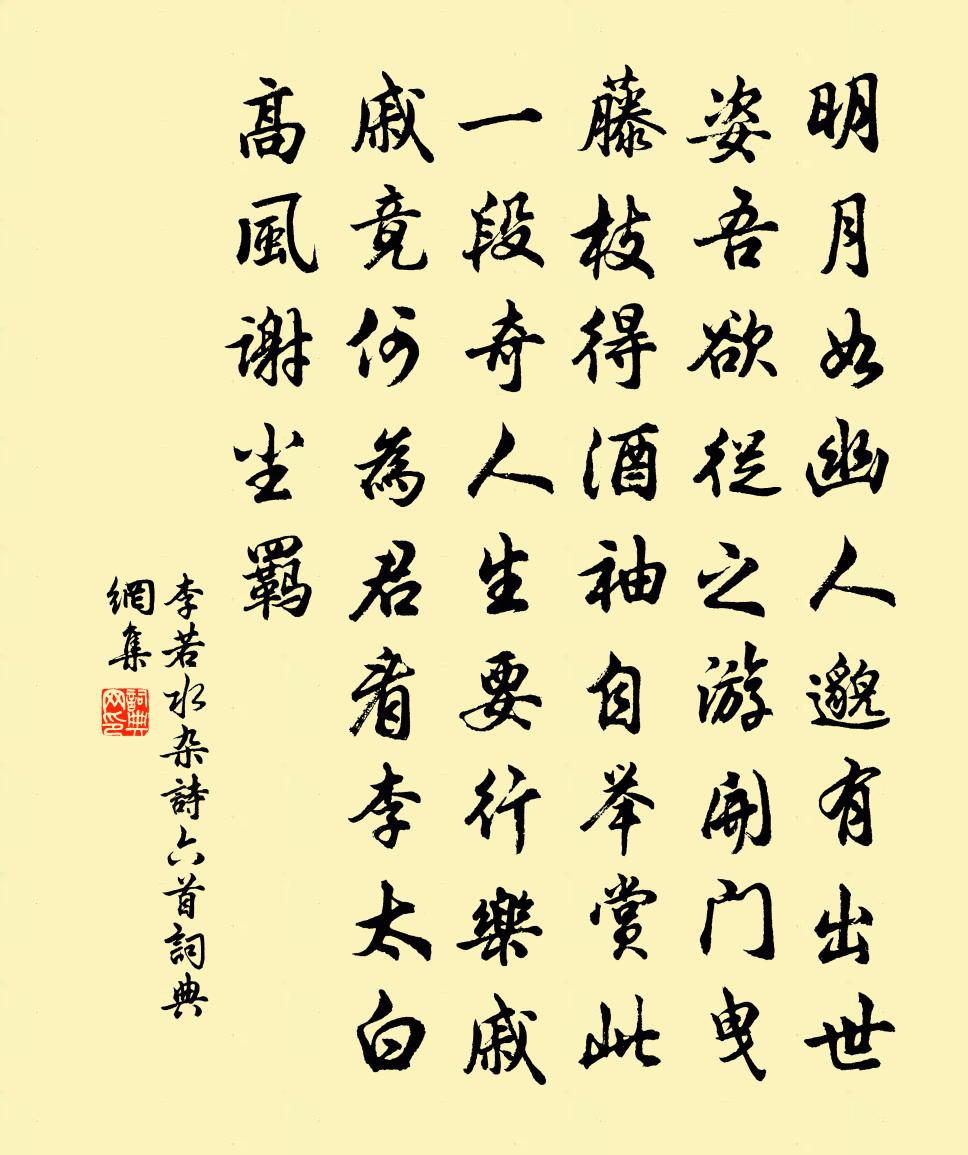 明月如幽人邈有出世
姿吾欲從之游開門曳
藤枝得酒袖自举賞此
一段奇人生要行樂戚
戚竟何為君看李太白
高風謝尘羈
李若水杂詩六首詞典
網集
詞典網印